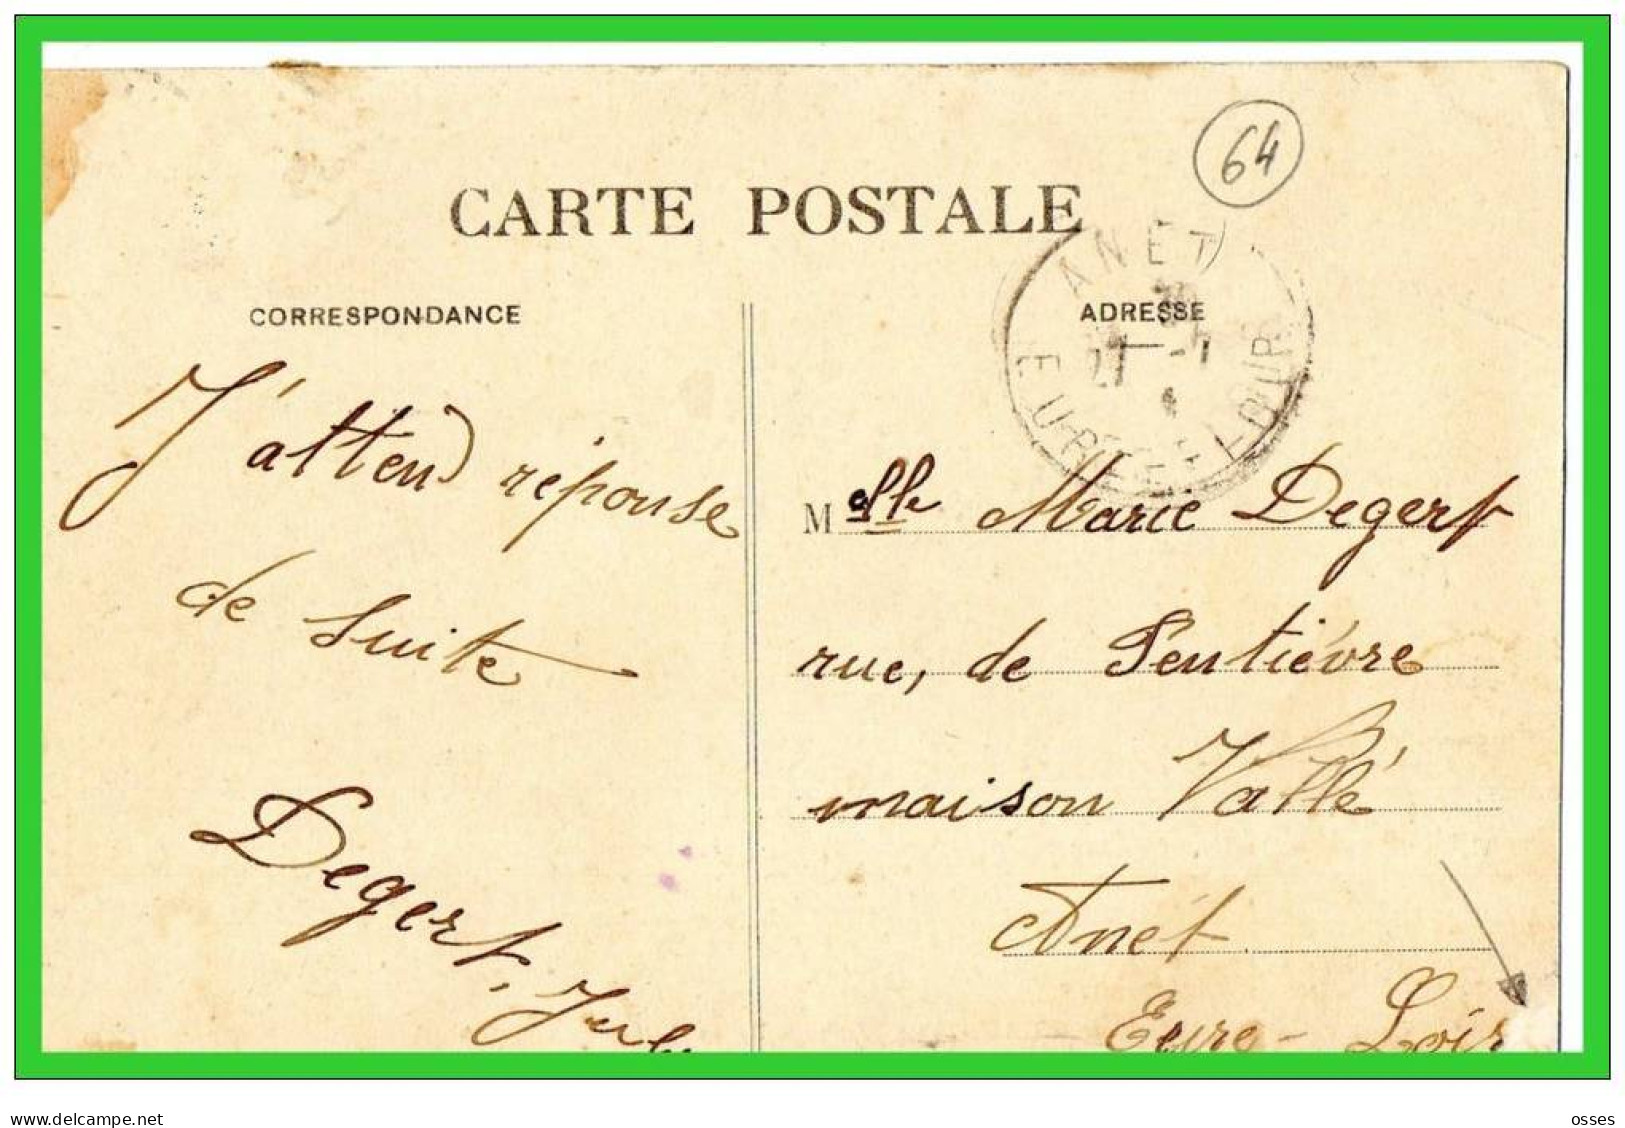 64
CARTE POSTALE
ANET
27 -1
EURE ET LOIR
CORRESPONDANCE
ADRESSE
J'attend réponse
de suite
Degert,
Melle Marie Degert
rue, de Pentièvre
maison Vallé
Anet
Eure-Loir
delcampe.net
osses